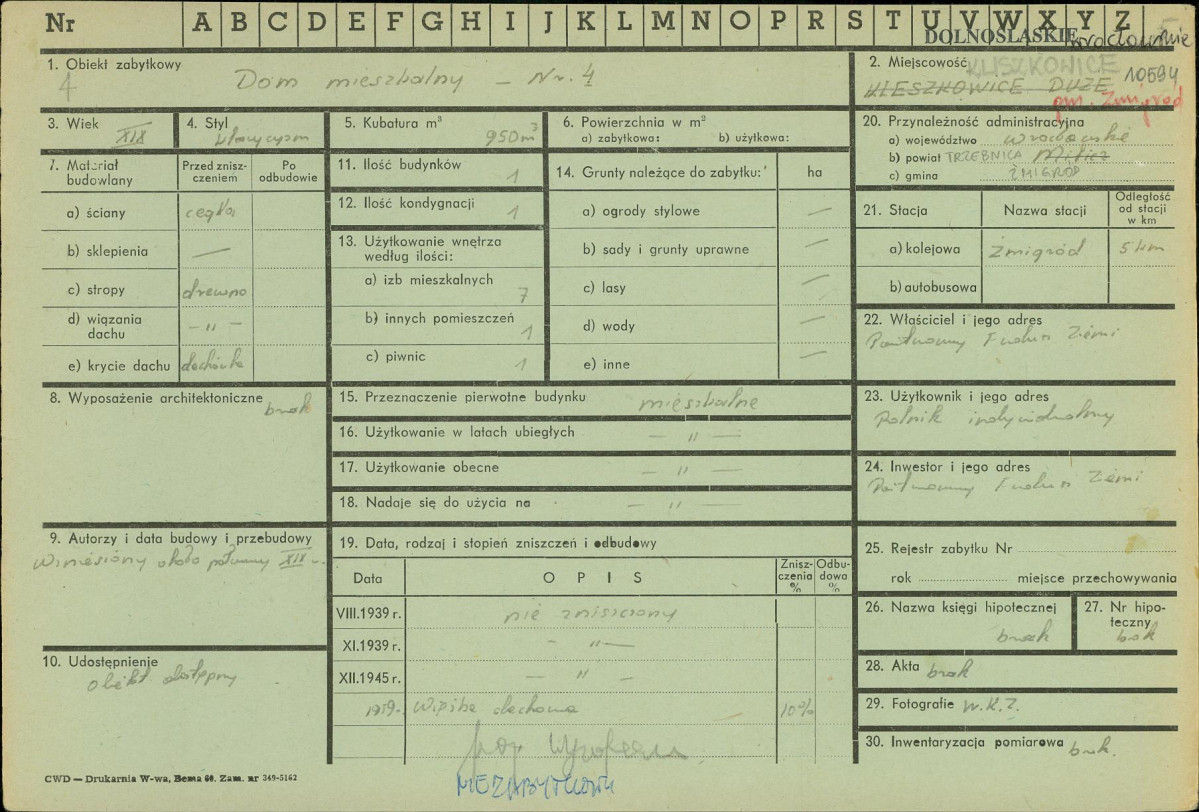 Nr A B C D E F G H I J K L M N O P R S T U V W X Y Z
DOLNOŚLĄSKIE
1. Obiekt zabytkowy
4 Dom mieszkalny – Nr. 4
2. Miejscowość KLISZKOWICE 10594
KLESZKOWICE DUŻE
pow. Żmigród
3. Wiek XIX
4. Styl klasycyzm
5. Kubatura m³ 950 m³
6. Powierzchnia w m²
a) zabytkowa: b) użytkowa:
20. Przynależność administracyjna
a) województwo wrocławskie
b) powiat TRZEBNICA Milicz
c) gmina ŻMIGRÓD
7. Materiał budowlany
Przed zniszczeniem
Po odbudowie
a) ściany cegła
b) sklepienia —
c) stropy drewno
d) wiązania dachu – " –
e) krycie dachu dachówka
11. Ilość budynków 1
12. Ilość kondygnacji 1
13. Użytkowanie wnętrza według ilości:
a) izb mieszkalnych 7
b) innych pomieszczeń 1
c) piwnic 1
14. Grunty należące do zabytku: ha
a) ogrody stylowe —
b) sady i grunty uprawne —
c) lasy —
d) wody —
e) inne —
21. Stacja Nazwa stacji Odległość od stacji w km
a) kolejowa Żmigród 5 km
b) autobusowa
22. Właściciel i jego adres
Państwowy Fundusz Ziemi
8. Wyposażenie architektoniczne brak
15. Przeznaczenie pierwotne budynku mieszkalne
16. Użytkowanie w latach ubiegłych — " —
17. Użytkowanie obecne — " —
18. Nadaje się do użycia na — " —
23. Użytkownik i jego adres
Rolnik indywidualny
24. Inwestor i jego adres
Państwowy Fundusz Ziemi
9. Autorzy i data budowy i przebudowy
Wzniesiony około połowy XIX w.
10. Udostępnienie
obiekt dostępny
19. Data, rodzaj i stopień zniszczeń i odbudowy
Data OPIS Zniszczenia % Odbudowa %
VIII.1939 r. nie zniszczony
XI.1939 r. – " —
XII.1945 r. — " —
1959. Więźba dachowa 10%
NIEZABYTKOWY
25. Rejestr zabytku Nr
rok miejsce przechowywania
26. Nazwa księgi hipotecznej
brak
27. Nr hipoteczny
brak
28. Akta brak
29. Fotografie W.K.Z.
30. Inwentaryzacja pomiarowa brak.
CWD — Drukarnia W-wa, Bema 60. Zam. nr 349-5162